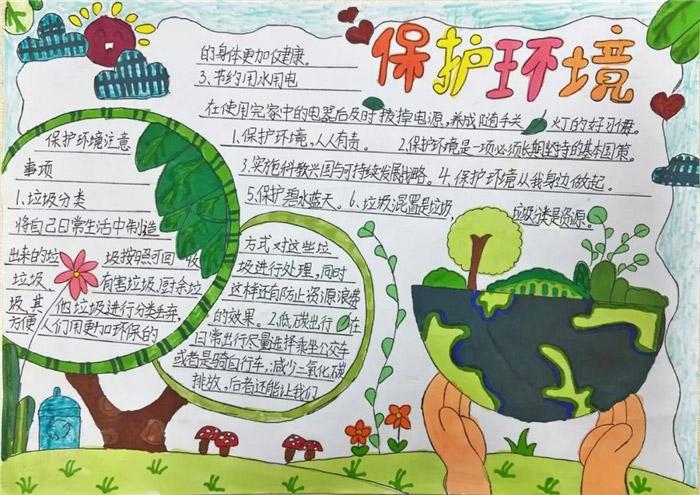 保护环境
保护环境注意
事项
1、垃圾分类
将自己日常生活中制造
出来的垃 圾按照可回收
垃圾、有害垃圾、厨余垃
圾、其他垃圾进行分类丢弃,
方便人们用更加环保的
方式对这些垃
圾进行处理,同时
这样还有防止资源浪费
的效果。2、低碳出行 在
日常出行尽量选择乘坐公交车
或者是骑自行车,减少二氧化碳
排放,后者还能让我们
的身体更加健康。
3、节约用水用电
在使用完家中的电器后及时拔掉电源,养成随手关 灯的好习惯。
1.保护环境,人人有责。 2.保护环境是一项必须长期坚持的基本国策。
3.实施科教兴国与可持续发展战略。4.保护环境从我身边做起。
5.保护碧水蓝天。6.垃圾混置是垃圾, 垃圾分类是资源。